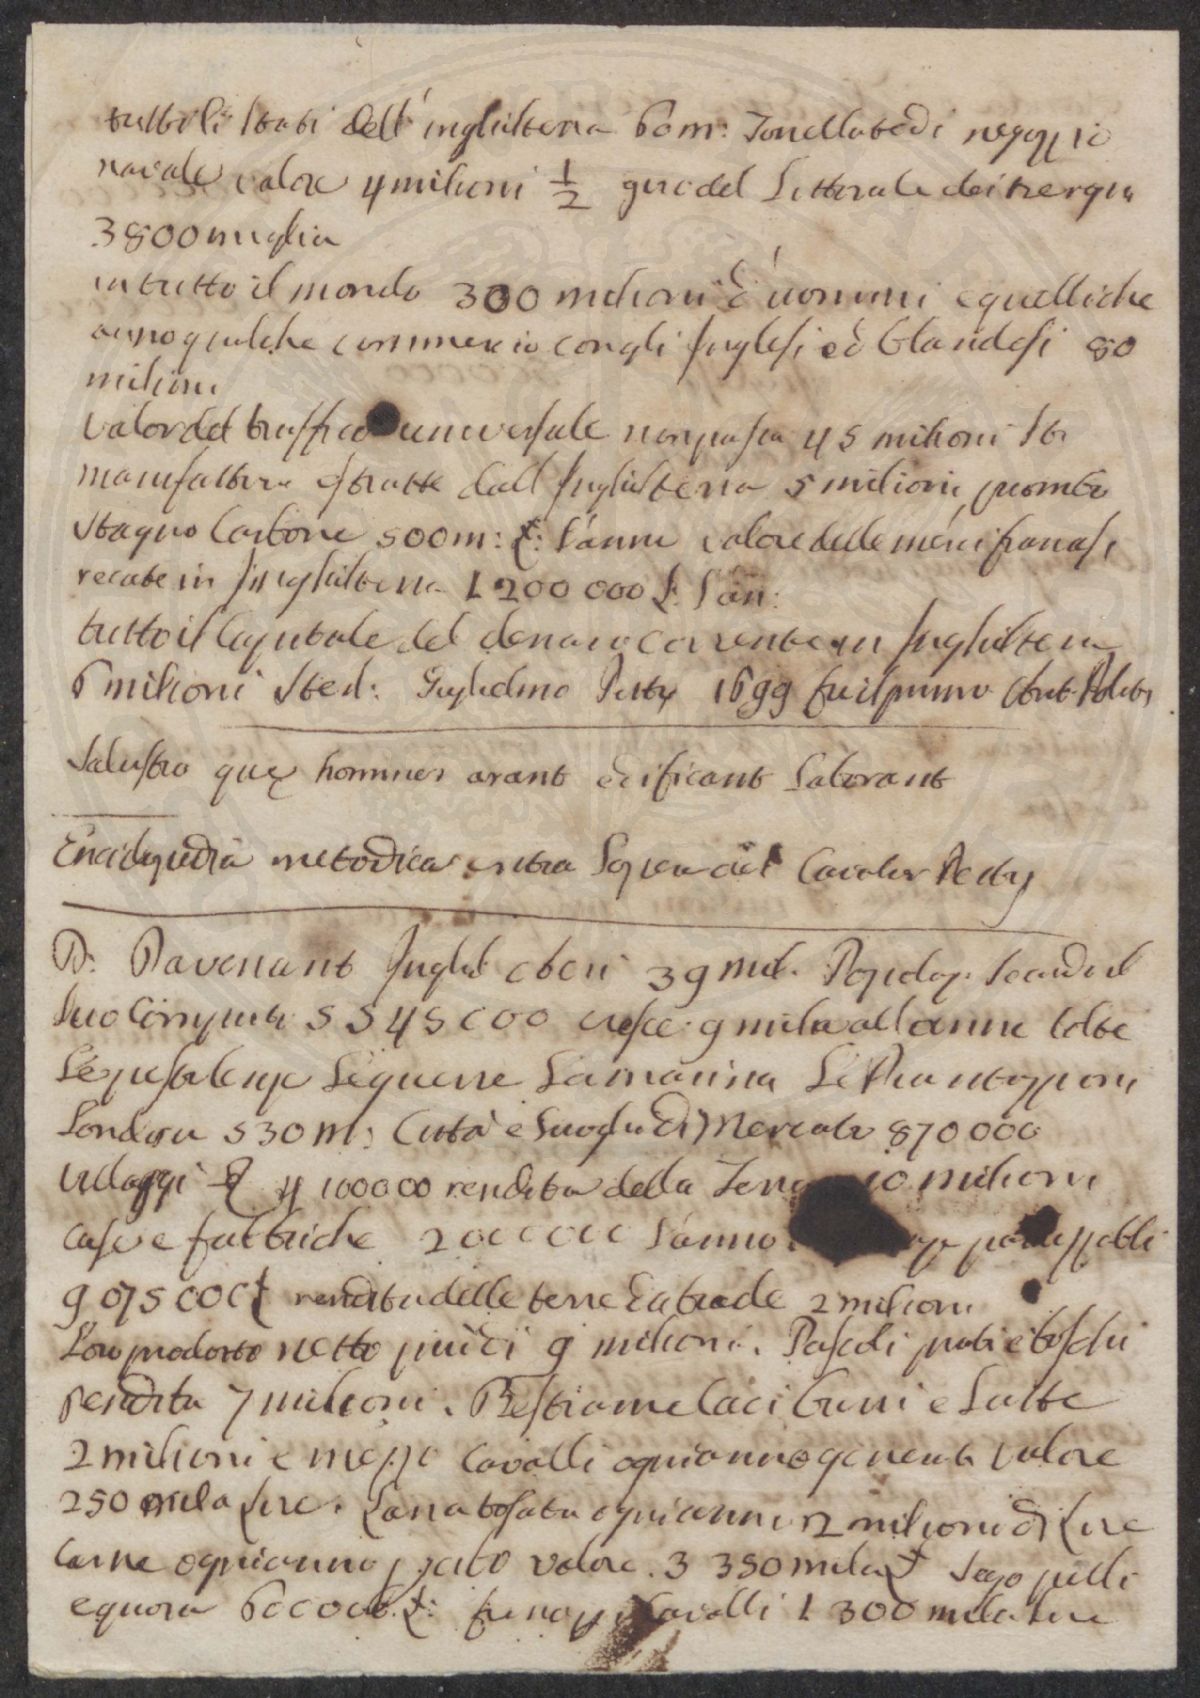 tutti li stati dell'inghilterra 60 m: Tonellate di negozzio
navale valore 4 milioni 1/2 giro del Littorale dei tre regni
3800 miglia
in tutto il mondo 300 milioni d'uomini e quelli che
anno qualche commercio con gli Inglesi ed Olandesi 80
milioni
valor del traffico universale non passa 45 milioni St:
manifatture estratte dall Inghilterra 5 milioni, piombo
Stagno Carbone 500 m: £: l'anno valore delle merci francesi
recate in Inghilterra 1 200 000 £. l'an:
tutto il Capitale del denaro corrente in Inghilterra
6 milioni Sterl: Guglielmo Petty 1699 fu il primo
Salustio quę homines arant edificant laborant
Enciclopedia metodica entra l'opera del Cavalier Petty
D: Davenant Inghil 39 mil. Popolaz. secondo il
suo Computo 5 545 000 cresce 9 mila all anno tolte
le pestilenze le guerre la marina le Piantazzioni
Londra 530 m: Città e luoghi di Mercato 870 000
Villaggi 4 100000 rendita della Terra 10 milioni
case e fabbriche 2000000 l'anno
9 075 000 £ rendita delle terre a biade 2 milioni
Loro prodotto netto più di 9 milioni. Pascoli prati e boschi
rendita 7 milioni. Bestiame Caci burri e latte
2 milioni e mezzo Cavalli ogni anno generati valore
250 mila Lire. Lana tosata ogni anno 2 milioni di Lire
Carne ogni anno valore. 3 350 mila £ Sego pelli
e quoia 600000. £: fieno Cavalli 1 300 mila Lire